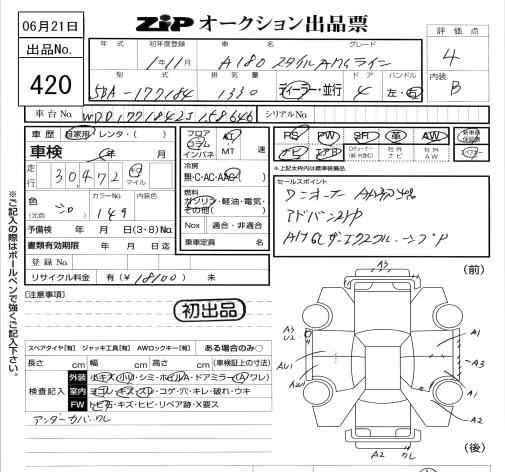 06月21日
出品No.
420
ZiP オークション出品票
評価点
4
内装
B
年式 初年度登録 車名 グレード
1年11月 A180 スタイルAMGライン
型式 排気量 ドア ハンドル
5BA-177184 1330 ディーラー・並行 4 左・右
車台No. WDD1771842J158646 シリアルNo.
車歴 自家用・レンタ・( )
車検 年 月
走行 30,472 km マイル
色 (元色) シロ カラーNo. 149 内装色
予備検 年 月 日(3・8)No.
書類有効期限 年 月 日迄
登録No.
リサイクル料金 有(¥18100) 未
フロア コラム インパネ AT MT 速
冷房
無・C・AC・AAC
燃料
ガソリン・軽油・電気・その他( )
Nox 適合・非適合
乗車定員 名
PS PW SR 革 AW 新車時保証書
ナビ エアB 社外ナビ 社外AW
※上記太枠内は標準装備品
セールスポイント
ワンオーナー
※ご記入の際はボールペンで強くご記入下さい。
[注意事項]
初出品
スペアタイヤ[有] ジャッキ工具[有] AWロックキー[有] ある場合のみ○
長さ cm 幅 cm 高さ cm (車検証上の寸法)
検査記入
外装 小キズ・小凹・シミ・ホイルA・ドアミラー(A・ワレ)
室内 ヨゴレ・キズ・スレ・コゲ・穴・キレ・破れ・ウキ
FW トビ石・キズ・ヒビ・リペア跡・X要ス
アンダーカバーワレ
(前)
A3
A3
U2
A1
AU1
A3
A1
A2
A2 ワレ
(後)